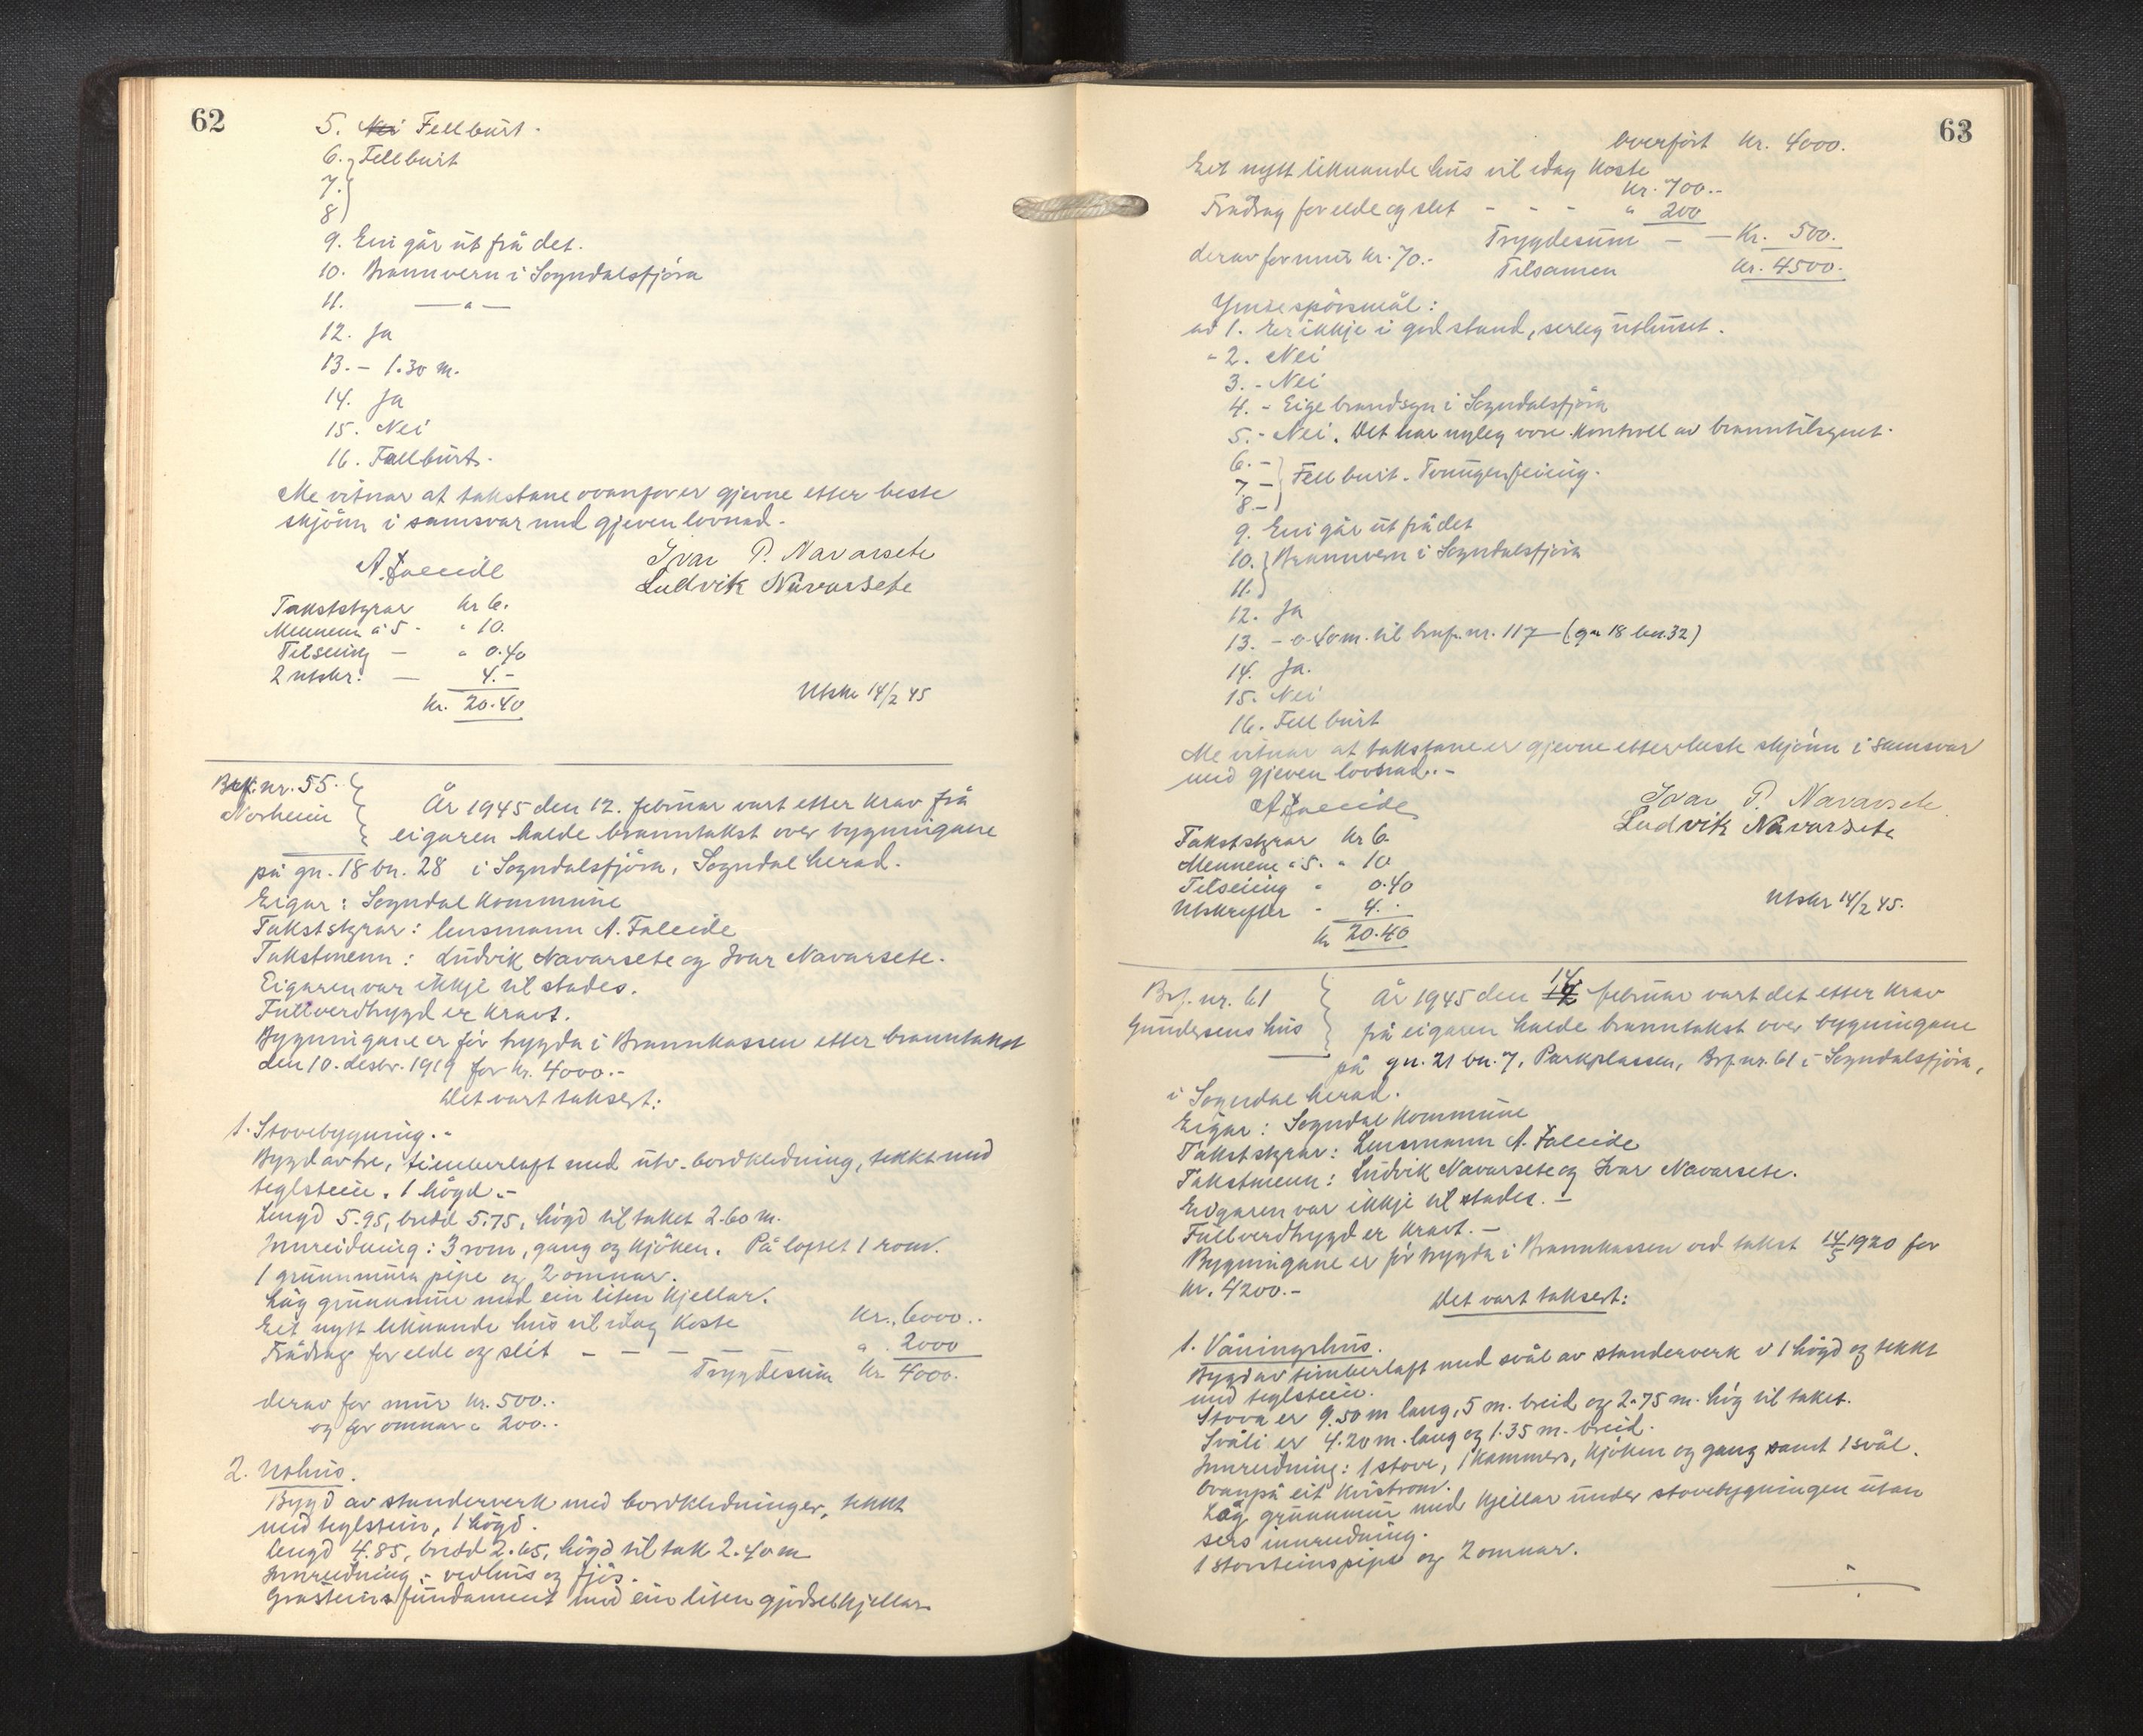 62
5. Nei Fell burt.
6. } Fell burt
7. }
8 }
9. Ein går ut frå det.
10. Brannvern i Sogndalsfjöra
11. — " —
12. Ja
13. - 1.30 m.
14. Ja
15. Nei
16. Fell burt.
Me vitnar at takstane ovanfor er gjevne etter beste
skjönn i samsvar med gjeven lovnad.-
A. Faleide Ivar P. Navarsete
Ludvik Navarsete
Takststyrar kr 6.
Mennene a 5. " 10.
Tilseiing — " 0.40
2 utskr. — 4.-
kr. 20.40
Utskr 14/2 45
Brf. nr. 55.
Norheim
År 1945 den 12. februar vart etter krav frå
eigaren halde branntakst over bygningane
på gn. 18 bn. 28 i Sogndalsfjöra, Sogndal herad.
Eigar: Sogndal kommune
Takststyrar: lensmann A. Faleide
Takstmenn: Ludvik Navarsete og Ivar Navarsete.
Eigaren var ikkje til stades.
Fullverdtrygd er kravt.
Bygningane er för trygda i Brannkassen etter branntakst
den 10. desbr. 1919 for kr. 4000.-
Det vart taksert:
1. Stovebygning.-
Bygd av tre, timberlaft med utv. bordkledning, tekkt med
teglstein. 1 högd.-
Lengd 5.95, breidd 5.75, högd til taket 2.60 m.
Innreidning: 3 rom, gang og kjöken. På loftet 1 rom.
1 grunnmura pipe og 2 omnar.
Låg grunnmur med ein liten kjellar.
Eit nytt liknande hus vil idag koste kr. 6000..
Frådrag for elde og slit — — — — " 2000
Trygdesum kr 4000.
derav for mur kr. 500..
og for omnar " 200..
2. Uthus.
Bygd av standerverk med bordkledninger, tekkt
med teglstein, 1 högd.
Lengd 4.85, breidd 2.65, högd til tak 2.40 m
Innreidning: vedhus og fjös.
Gråsteinsfundament med ein liten gjödselkjellar
63
Overfört kr. 4000.
Eit nytt liknande hus vil idag koste
kr. 700.-
Frådrag for elde og slit - - - " 200
Trygdesum — — Kr. 500.
derav for mur kr. 70.-
Tilsamen kr. 4500.
Ymse spörsmål:
ad 1. Er ikkje i god stand, serleg uthuset.
" 2. Nei
3. - Nei
4. - Eige brandsyn i Sogndalsfjöra
5. - Nei. Det har nyleg vore kontroll av branntilsynet.
6. - }
7. - } Fell burt. Tvungen feiing.
8. - }
9. Ein går ut frå det
10. } Brannvern i Sogndalsfjöra
11. }
12. Ja
13. - 0.40 m. til brnf. nr. 117 — (gn 18 bn. 32)
14. Ja.
15. Nei
16. Fell burt
Me vitnar at takstane er gjevne etter beste skjönn i samsvar
med gjeven lovnad.. -
A Faleide Ivar P. Navarsete
Ludvik Navarsete
Takststyrar kr 6.
Mennene a 5. " 10
Tilseiing " 0.40
Utskrifter " 4..
kr 20.40
Utskr 14/2 45.
Brf. nr. 61
Gundersens hus
År 1945 den 14 februar vart det etter krav
frå eigaren halde branntakst over bygningane
på gn. 21 bn. 7, Parkplassen, Brf. nr. 61 i Sogndalsfjöra,
i Sogndal herad.
Eigar: Sogndal kommune
Takststyrar: Lensmann A. Faleide
Takstmenn: Ludvik Navarsete og Ivar Navarsete.
Eigaren var ikkje til stades. -
Fullverdtrygd er kravt. -
Bygningane er för trygda i Brannkassen ved takst 14/5 1920 for
kr. 4200.-
Det vart taksert:
1. Våningshus.
Bygd av timberlaft med svål av standerverk i 1 högd og tekkt
med teglstein.
Stova er 9.50 m lang, 5 m. breid og 2.75 m. hög til taket.
Svåli er 4.20 m. lang og 1.35 m. breid.
Innreidning: 1 stove, 1 kammers, kjöken og gang samt 1 svål.
Ovanpå eit kvistrom.
Låg grunnmur med kjellar under stovebygningen utan
sers innreidning.
1 storsteinspipe og 2 omnar.